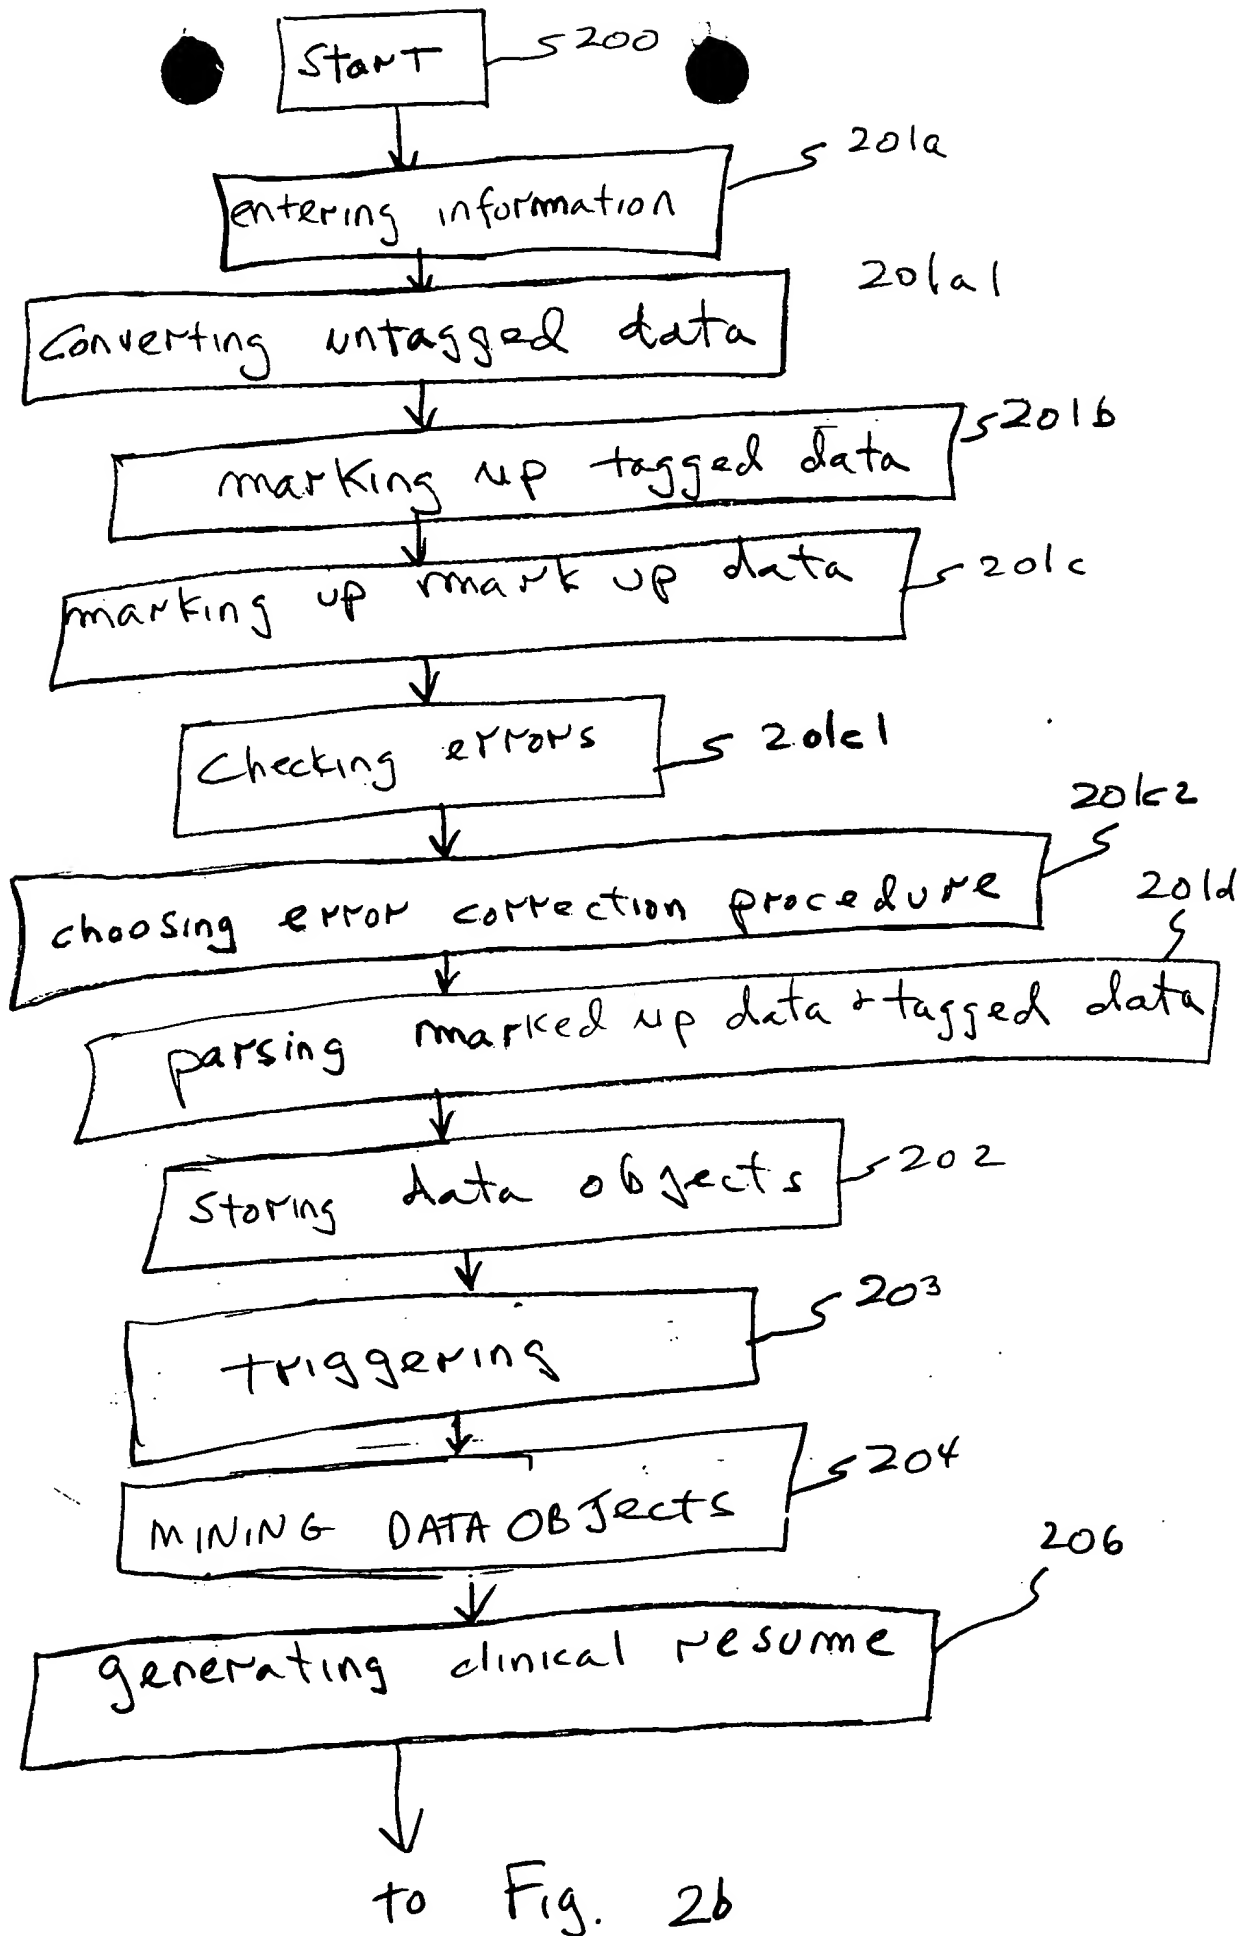 Start 200
201a
entering information
201a1
Converting untagged data
201b
marking up tagged data
marking up mark up data 201c
Checking errors 201c1
201c2
choosing error correction procedure
201d
parsing marked up data + tagged data
Storing data objects 202
203
triggering
204
MINING DATA OBJects
206
generating clinical resume
to Fig. 2b